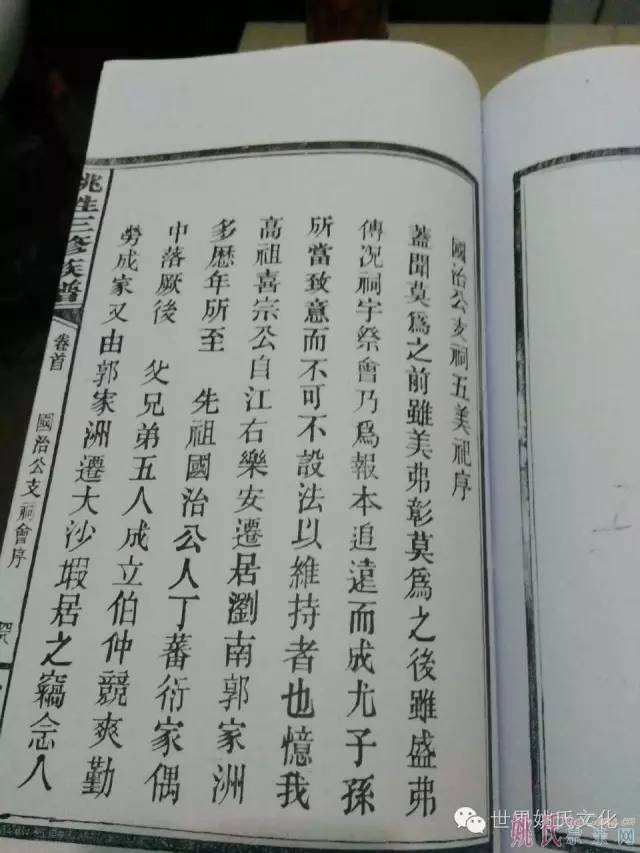 國治公支祠五美祀序
蓋聞莫爲之前雖美弗彰莫爲之後雖盛弗
傳況祠宇祭會乃爲報本追遠而成尤子孫
所當致意而不可不設法以維持者也憶我
高祖喜宗公自江右樂安遷居瀏南郭家洲
多歷年所至 先祖國治公人丁蕃衍家偶
中落厥後 父兄弟五人成立伯仲競爽勤
勞成家又由郭家洲遷大沙塅居之竊念人
姚姓三修族譜
卷首
國治公支祠會序
世界姚氏文化
姚氏宗亲网